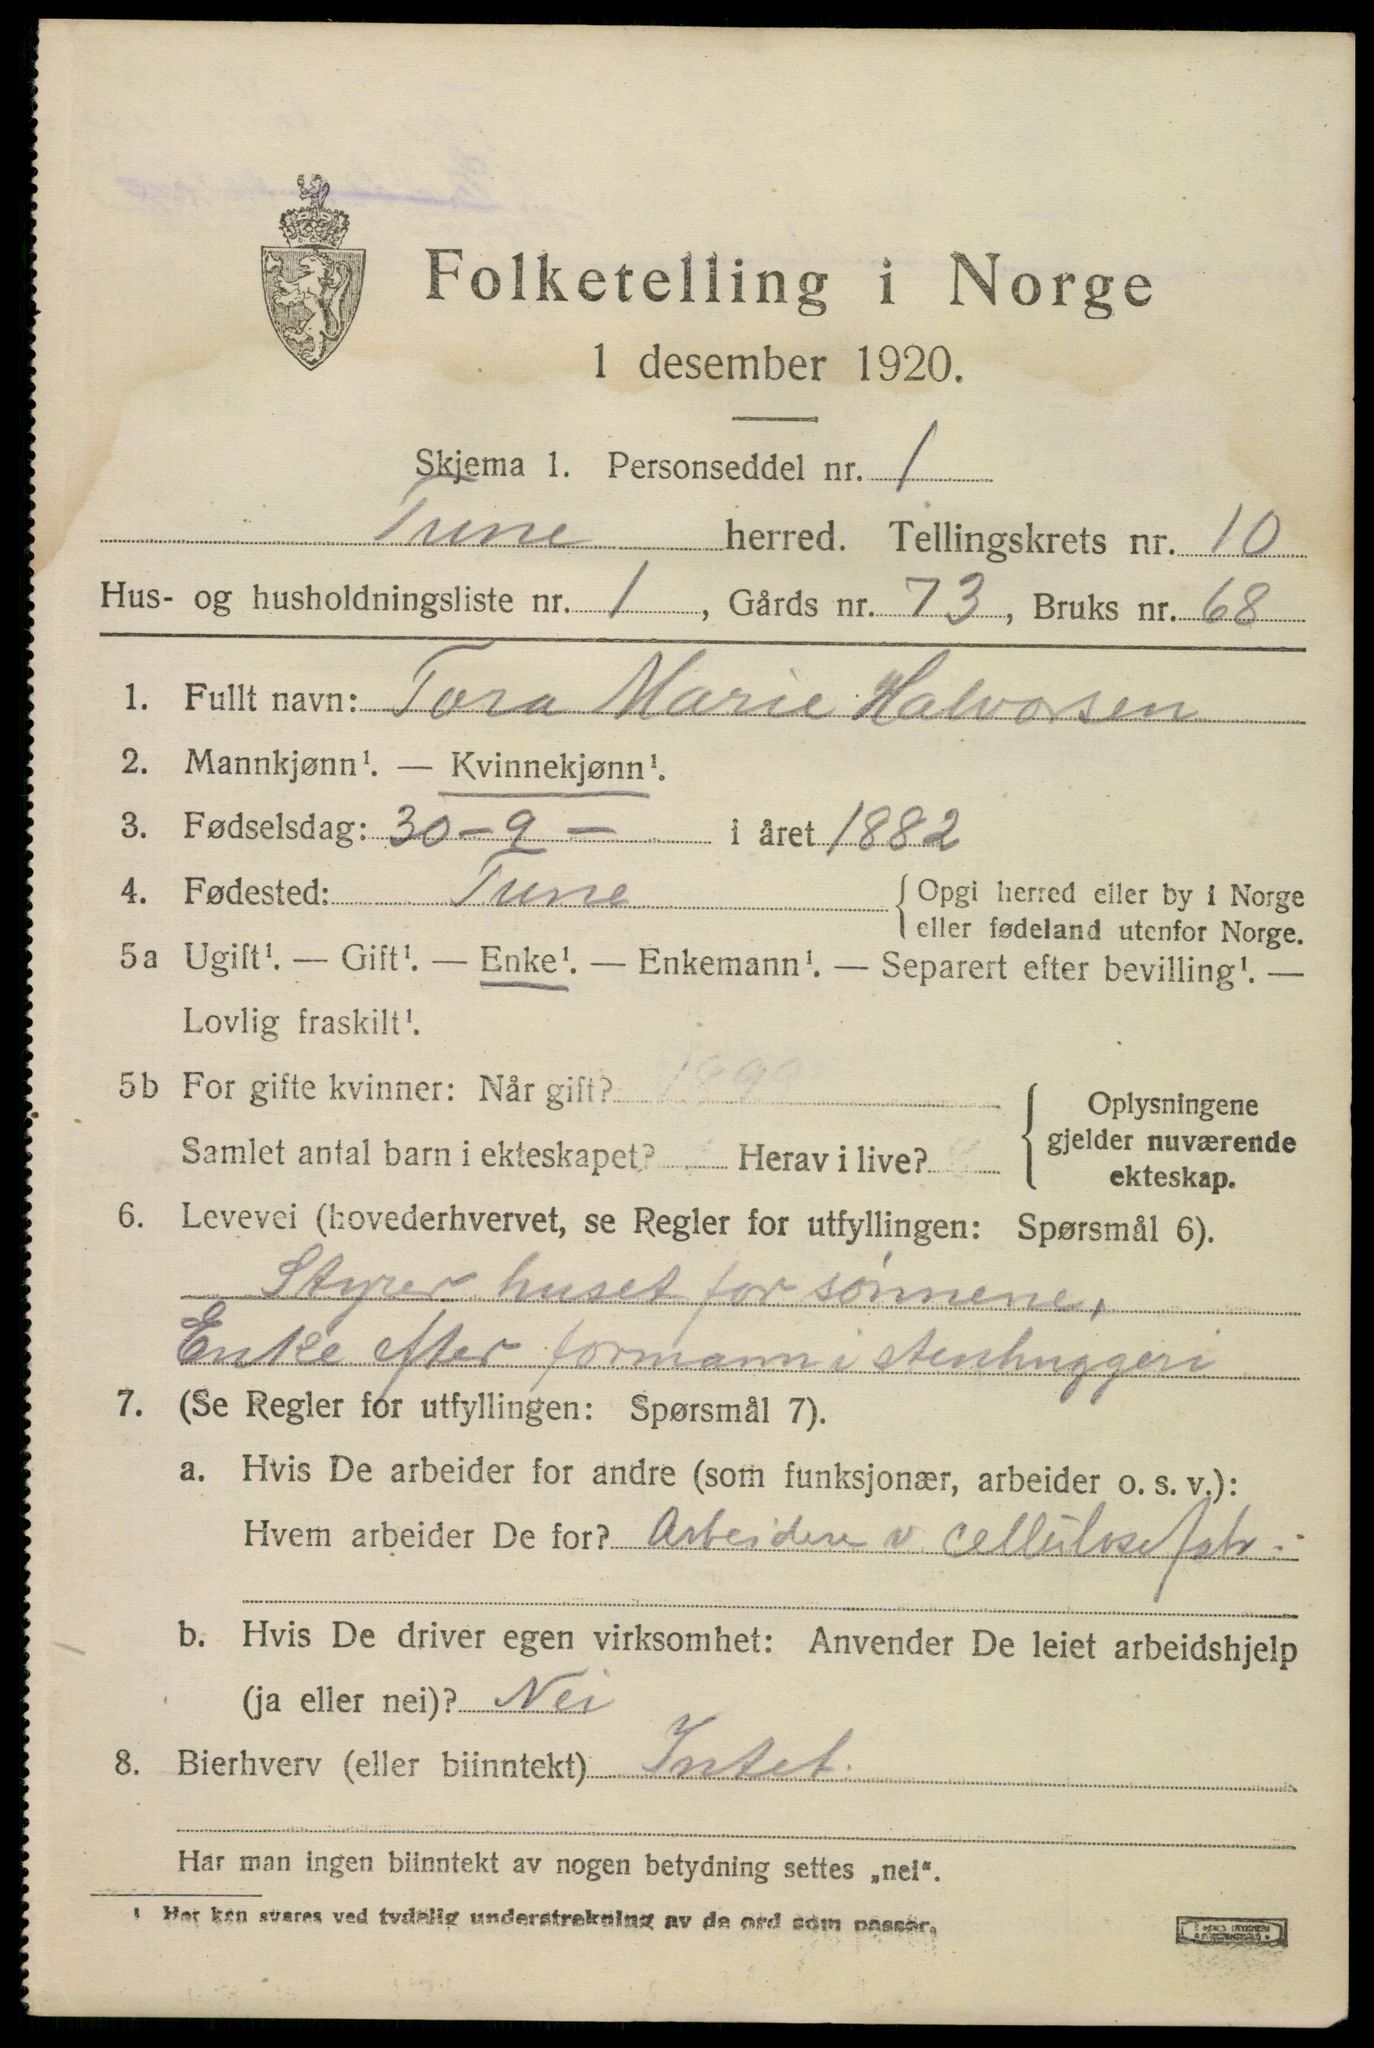 Folketelling i Norge
1 desember 1920.
Skjema 1. Personseddel nr. 1
Tune herred. Tellingskrets nr. 10
Hus- og husholdningsliste nr. 1, Gårds nr. 73, Bruks nr. 68
1. Fullt navn: Tora Marie Halvorsen
2. Mannkjønn¹. — Kvinnekjønn¹.
3. Fødselsdag: 30-9- i året 1882
4. Fødested: Tune
Opgi herred eller by i Norge
eller fødeland utenfor Norge.
5a Ugift¹. — Gift¹. — Enke¹. — Enkemann¹. — Separert efter bevilling¹. —
Lovlig fraskilt¹.
5b For gifte kvinner: Når gift?
Samlet antal barn i ekteskapet? Herav i live?
Oplysningene
gjelder nuværende
ekteskap.
6. Levevei (hovederhvervet, se Regler for utfyllingen: Spørsmål 6).
Styrer huset for sønnene,
Enke efter formann i stenhuggeri
7. (Se Regler for utfyllingen: Spørsmål 7).
a. Hvis De arbeider for andre (som funksjonær, arbeider o. s. v.):
Hvem arbeider De for? Arbeidere v. cellulosefabr.
b. Hvis De driver egen virksomhet: Anvender De leiet arbeidshjelp
(ja eller nei)? Nei
8. Bierhverv (eller biinntekt) Intet.
Har man ingen biinntekt av nogen betydning settes „nei“.
¹ Her kan svares ved tydelig understrekning av de ord som passer.